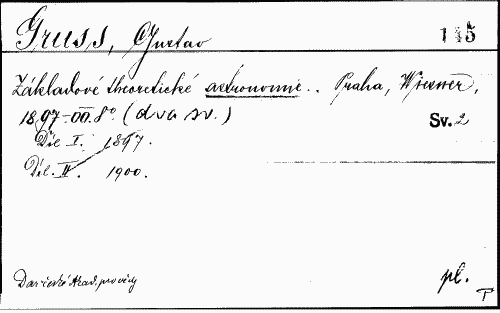 Gruss, Gustav 145
Základové theoretické astronomie.. Praha, Wiesner,
1897-00. 8° (dva sv.) Sv. 2
Díl I. 1897.
Díl. II. 1900.
Dar české Akad. pro vědy pl.
T